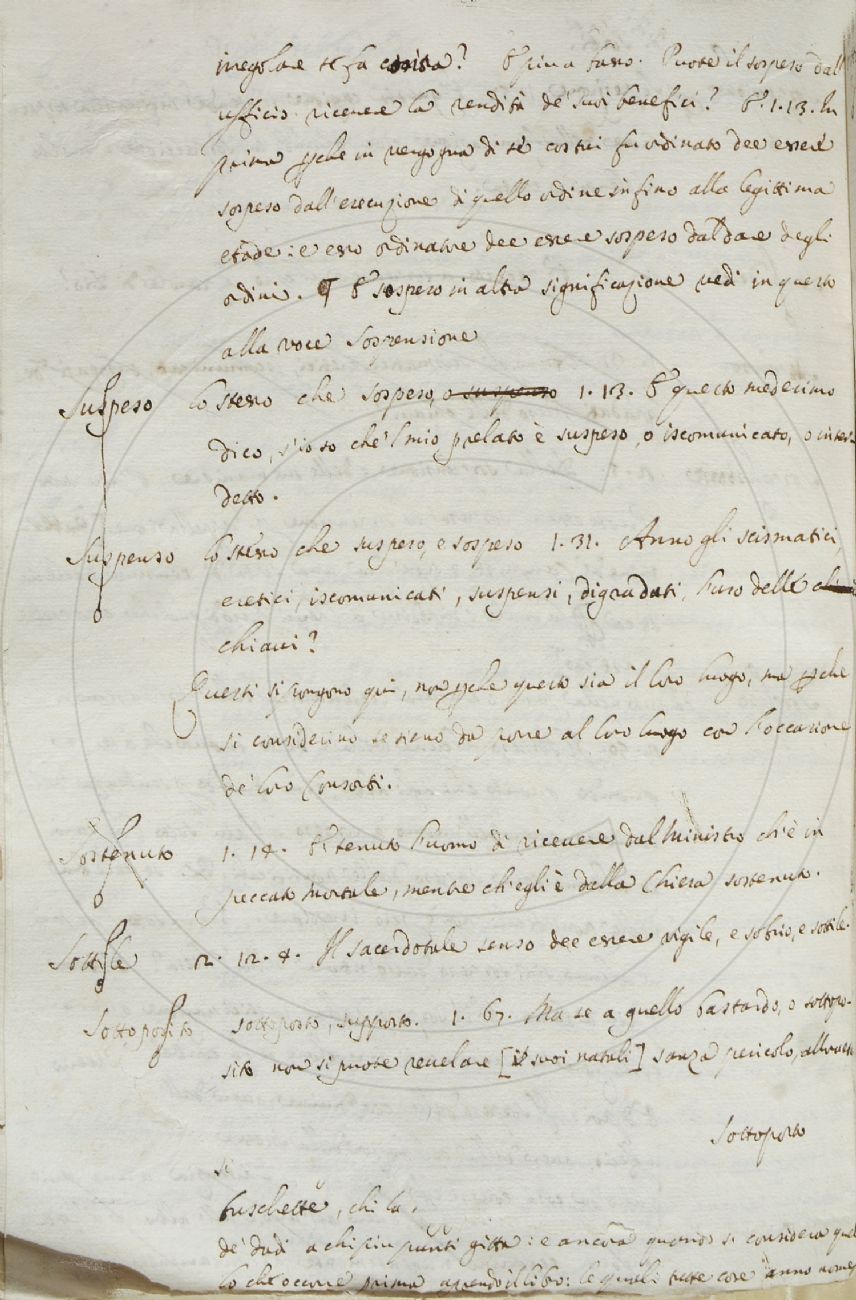 irregolare se fa contra? E più a basso. Puote il sospeso dall'
ufficio ricevere la rendita de' suoi benefici? E 1. 13. In
prima pche in vergogna di sé costui fu ordinato dee essere
sospeso dall'esecuzione di quello ordine infino alla legittima
etade: e esso ordinatore dee essere sospeso dal dare degli
ordini. ¶ E sospeso in altra significazione vedi in questo
alla voce Sospensione
Suspeso lo stesso che sospeso, o suspenso 1. 13. E questo medecimo
dico, s'io so che'l mio prelato è suspeso, o iscomunicato, o inter=
detto.
Suspenso lo stesso che suspeso, e sospeso 1. 31. Anno gli scismatici,
eretici, iscomunicati, suspensi, digradati, l'uso delle
chiavi?
Questi si pongono qui, non pche questo sia il loro luogo, ma pche
si considerino se sieno da porre al loro luogo con l'occasione
de' loro Consorti.
Sostenuto 1. 18. E tenuto l'uomo di ricevere dal Ministro ch'è in
peccato mortale, mentre ch'egli è dalla Chiesa sostenuto.
Sottile 2. 12. 8. Il sacerdotale senso dee essere vigile, e sobrio, e sottile.
Sottoposito sottoposto, supposto. 1. 67. Ma se a quello bastardo, o sottopo-
sito non si puote revelare [i suoi natali] sanza pericolo, allora
Sottoposto
si
buschette, chi la,
de' dadi a chi più punti gitta: e ancora quando si considera quel
lo che occorre prima aprendo il libro: le quali tutte cose anno nome